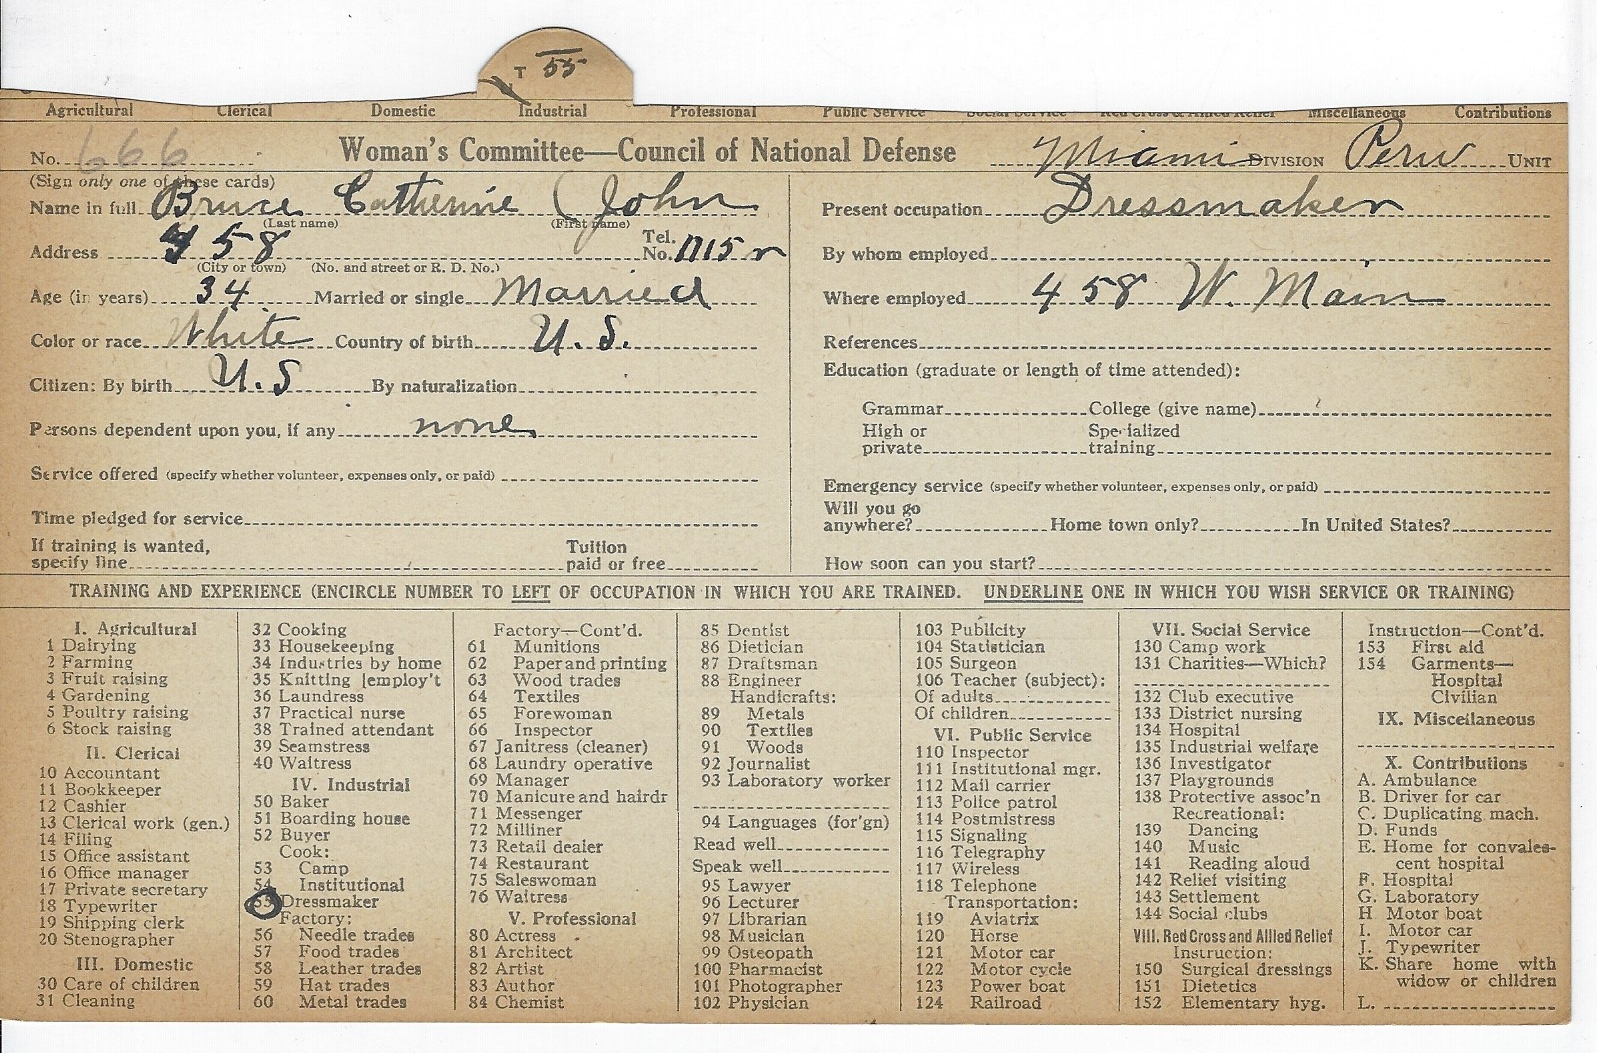 T 55
Agricultural Clerical Domestic Industrial Professional Public Service Social Service Red Cross & Allied Relief Miscellaneous Contributions
No. 666 Woman's Committee—Council of National Defense Miami DIVISION Peru UNIT
(Sign only one of these cards)
Name in full Bruce Catherine (John
(Last name) (First name)
Address 458 Tel. No. 1715 r
(City or town) (No. and street or R. D. No.)
Age (in years) 34 Married or single Married
Color or race White Country of birth U. S.
Citizen: By birth U.S By naturalization
Persons dependent upon you, if any none
Service offered (specify whether volunteer, expenses only, or paid)
Time pledged for service
If training is wanted, specify line Tuition paid or free
Present occupation Dressmaker
By whom employed
Where employed 458 W. Main
References
Education (graduate or length of time attended):
Grammar College (give name)
High or private Specialized training
Emergency service (specify whether volunteer, expenses only, or paid)
Will you go anywhere? Home town only? In United States?
How soon can you start?
TRAINING AND EXPERIENCE (ENCIRCLE NUMBER TO LEFT OF OCCUPATION IN WHICH YOU ARE TRAINED. UNDERLINE ONE IN WHICH YOU WISH SERVICE OR TRAINING)
I. Agricultural
1 Dairying
2 Farming
3 Fruit raising
4 Gardening
5 Poultry raising
6 Stock raising
II. Clerical
10 Accountant
11 Bookkeeper
12 Cashier
13 Clerical work (gen.)
14 Filing
15 Office assistant
16 Office manager
17 Private secretary
18 Typewriter
19 Shipping clerk
20 Stenographer
III. Domestic
30 Care of children
31 Cleaning
32 Cooking
33 Housekeeping
34 Industries by home
35 Knitting [employ't
36 Laundress
37 Practical nurse
38 Trained attendant
39 Seamstress
40 Waitress
IV. Industrial
50 Baker
51 Boarding house
52 Buyer
Cook:
53 Camp
54 Institutional
55 Dressmaker
Factory:
56 Needle trades
57 Food trades
58 Leather trades
59 Hat trades
60 Metal trades
Factory—Cont'd.
61 Munitions
62 Paper and printing
63 Wood trades
64 Textiles
65 Forewoman
66 Inspector
67 Janitress (cleaner)
68 Laundry operative
69 Manager
70 Manicure and hairdr
71 Messenger
72 Milliner
73 Retail dealer
74 Restaurant
75 Saleswoman
76 Waitress
V. Professional
80 Actress
81 Architect
82 Artist
83 Author
84 Chemist
85 Dentist
86 Dietician
87 Draftsman
88 Engineer
Handicrafts:
89 Metals
90 Textiles
91 Woods
92 Journalist
93 Laboratory worker
94 Languages (for'gn)
Read well
Speak well
95 Lawyer
96 Lecturer
97 Librarian
98 Musician
99 Osteopath
100 Pharmacist
101 Photographer
102 Physician
103 Publicity
104 Statistician
105 Surgeon
106 Teacher (subject):
Of adults
Of children
VI. Public Service
110 Inspector
111 Institutional mgr.
112 Mail carrier
113 Police patrol
114 Postmistress
115 Signaling
116 Telegraphy
117 Wireless
118 Telephone
Transportation:
119 Aviatrix
120 Horse
121 Motor car
122 Motor cycle
123 Power boat
124 Railroad
VII. Social Service
130 Camp work
131 Charities—Which?
132 Club executive
133 District nursing
134 Hospital
135 Industrial welfare
136 Investigator
137 Playgrounds
138 Protective assoc'n
Recreational:
139 Dancing
140 Music
141 Reading aloud
142 Relief visiting
143 Settlement
144 Social clubs
VIII. Red Cross and Allied Relief
Instruction:
150 Surgical dressings
151 Dietetics
152 Elementary hyg.
Instruction—Cont'd.
153 First aid
154 Garments—
Hospital
Civilian
IX. Miscellaneous
X. Contributions
A. Ambulance
B. Driver for car
C. Duplicating mach.
D. Funds
E. Home for convales-
cent hospital
F. Hospital
G. Laboratory
H Motor boat
I. Motor car
J. Typewriter
K. Share home with
widow or children
L.